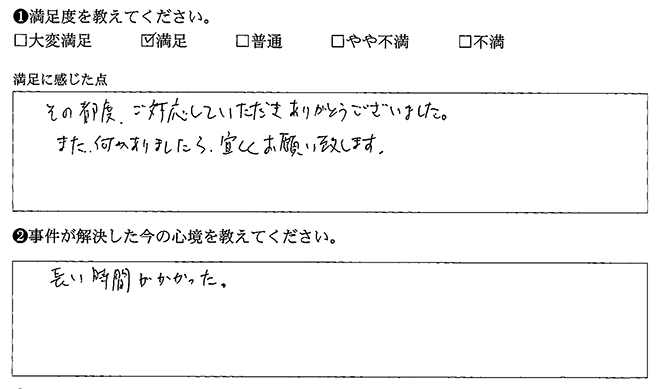 ❶満足度を教えてください。
☐大変満足 ☑満足 ☐普通 ☐やや不満 ☐不満
満足に感じた点
その都度、ご対応していただきありがとうございました。
また、何かありましたら、宜しくお願い致します。
❷事件が解決した今の心境を教えてください。
長い時間がかかった。